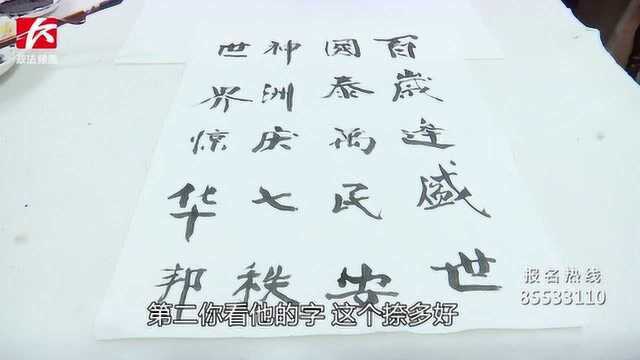 政法频道
百歲逢盛世
國泰萬民安
神洲庆七秩
世界惊华邦
报名热线
85533110
第二你看他的字 这个捺多好